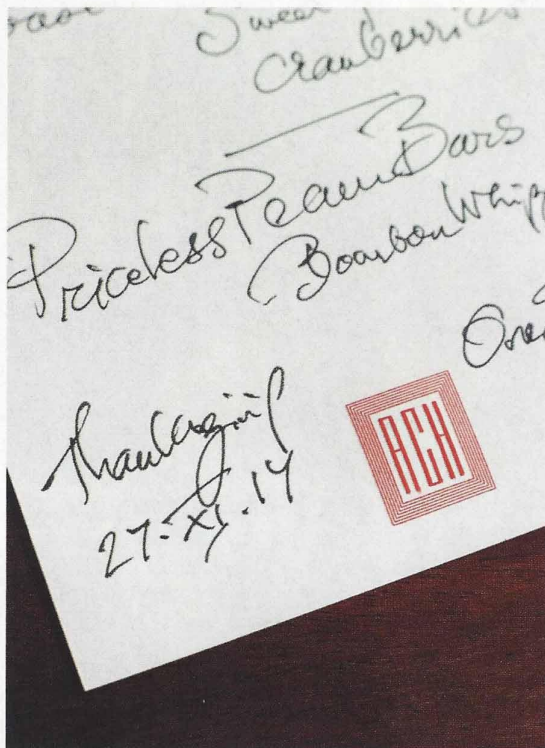 Sweet
Cranberries
Priceless Pecan Bars
Bourbon Whipp
Thanksgiving
27.XI.14
ACH